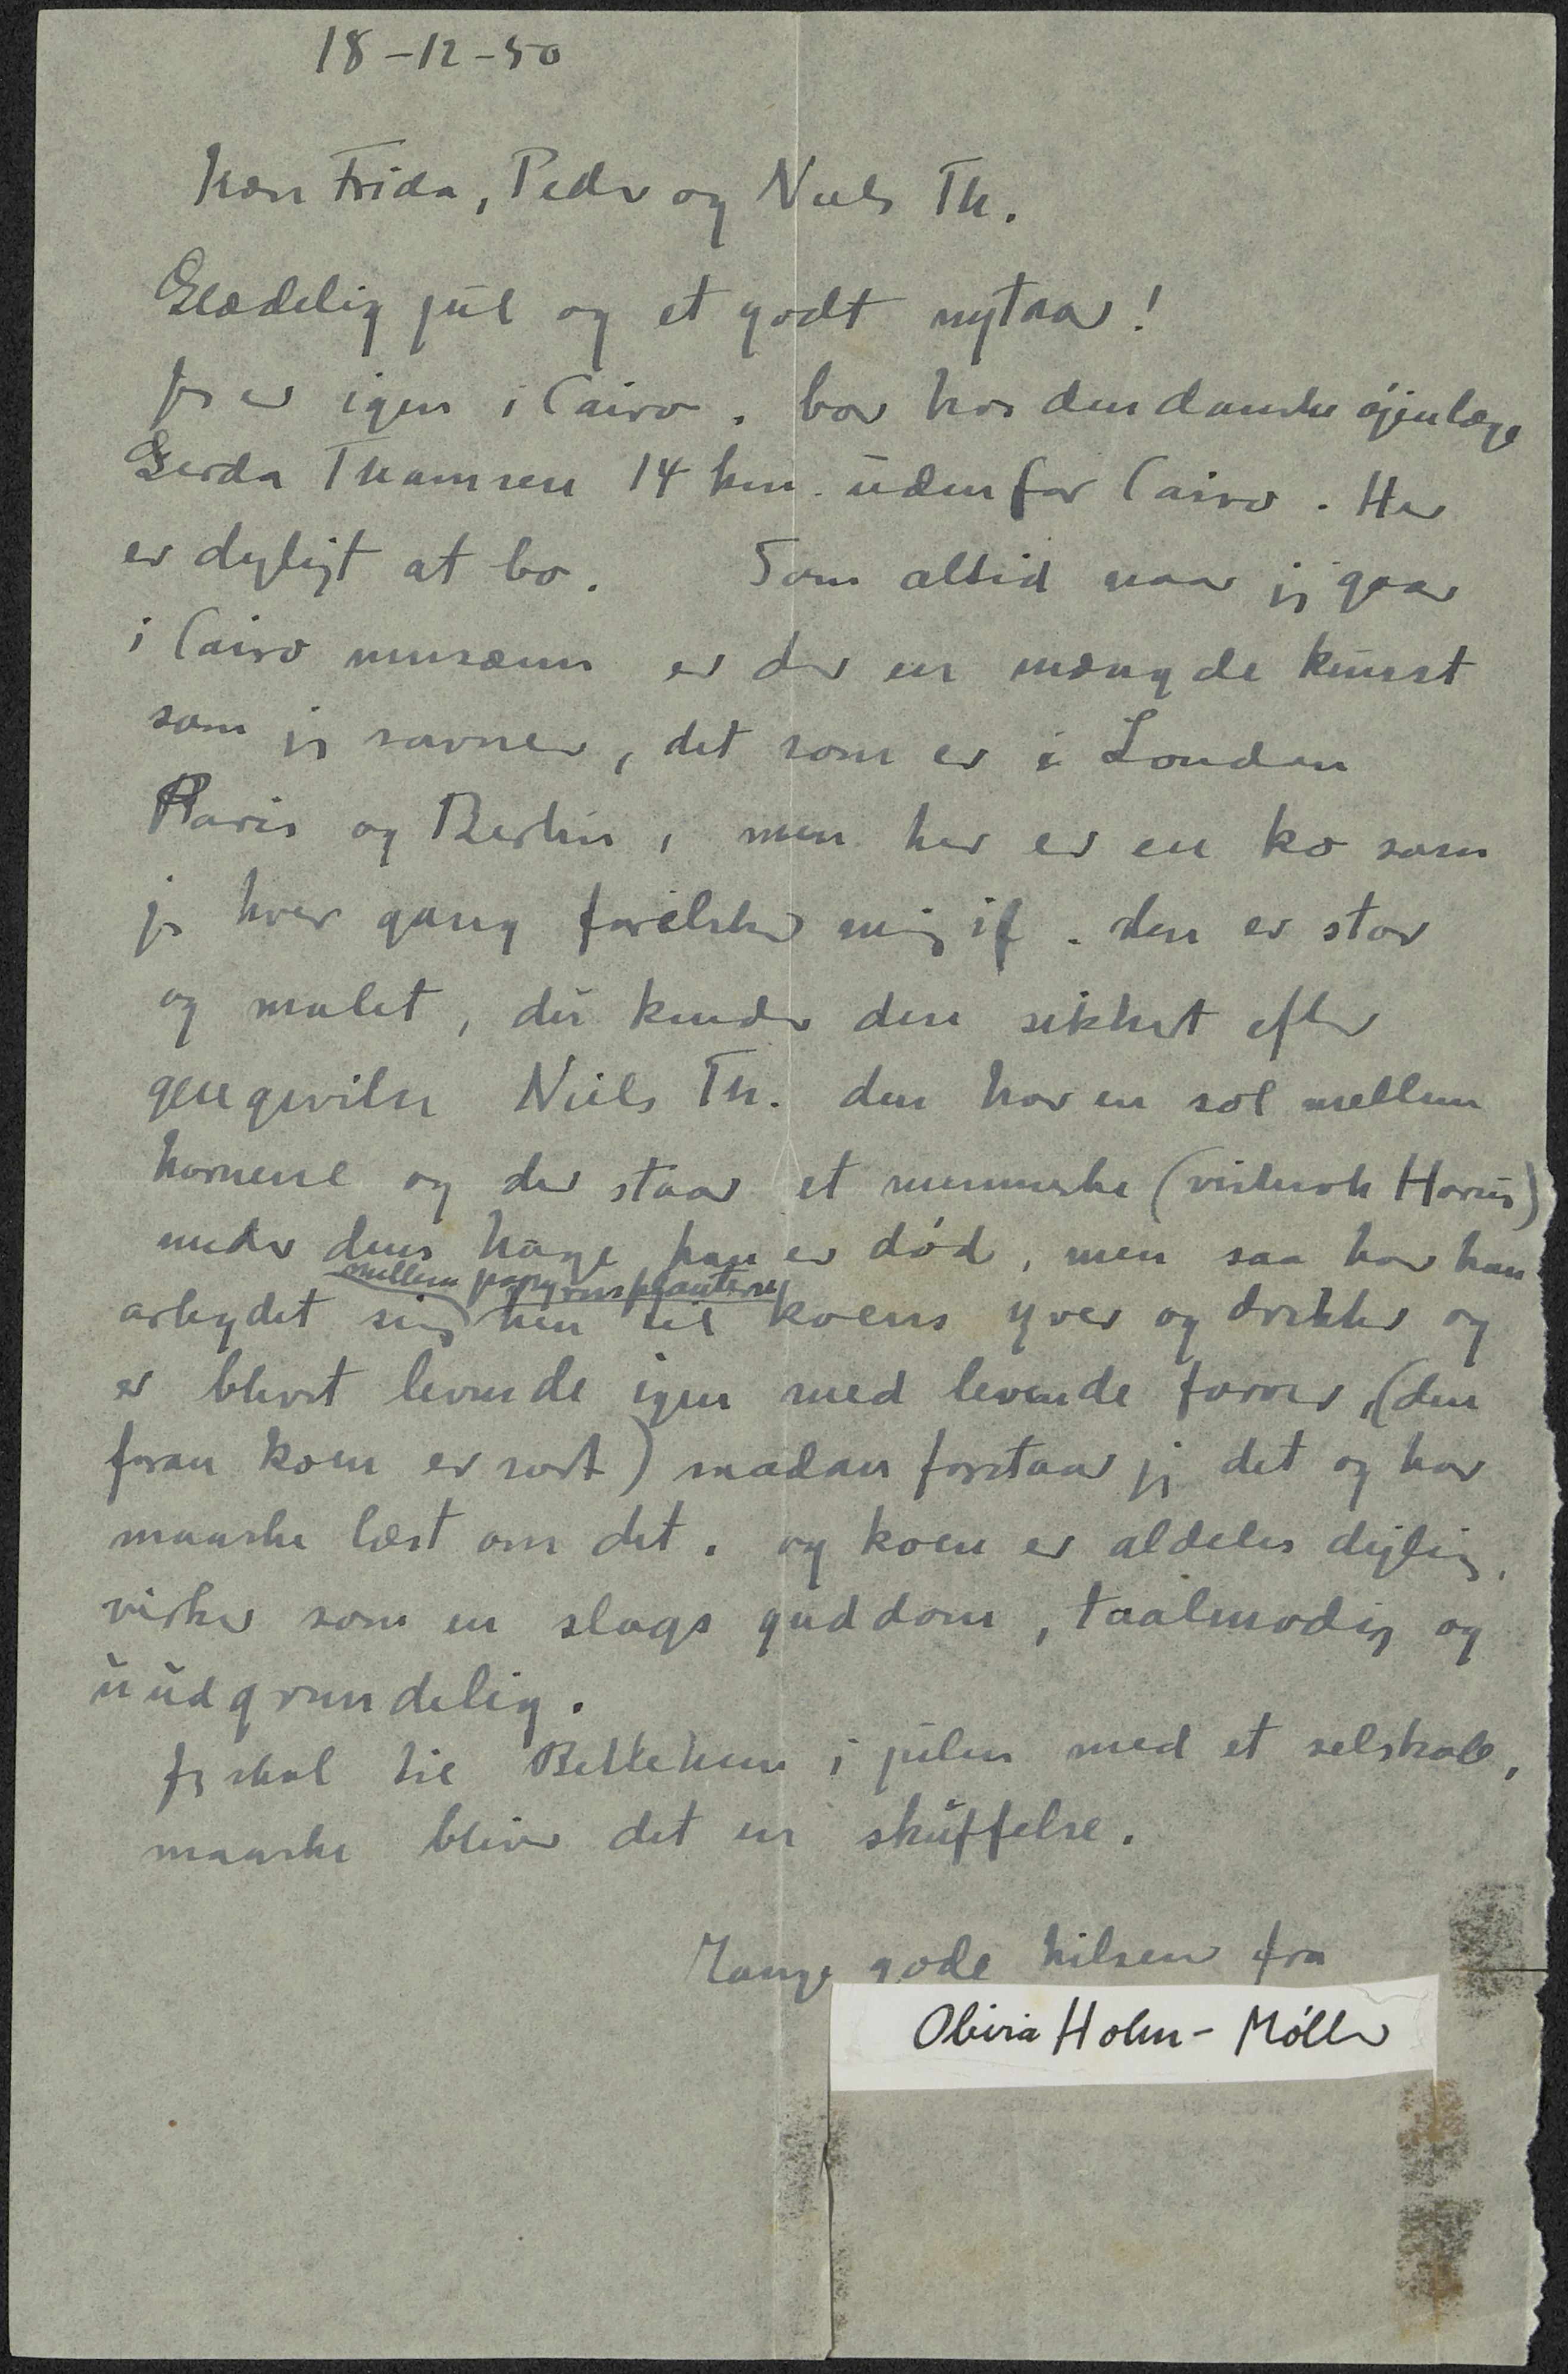 18-12-50
Kær Frida, Peder og Niels Th.
Glædelig jul og et godt nytaar!
Jeg er igen i Cairo. bor hos den danske øjenlæge
Gerda Thamsen 14 km. udenfor Cairo. Her
er dyligt at bo. Som altid naar jeg gaar
i Cairo musæum er der en mængde kunst
som jeg savner, det som er i London
Paris og Berlin, men her er en ko som
jeg hver gang forelsker mig if. den er stor
og malet, du kender den sikkert efter
gengivelser Niels Th. den har en sol mellem
hornene og der staar et menneske (vistnok Horus)
under dens hage han er død, men saa har han
mellem papyrusplanterne
arbejdet sig hen til koens yver og drikker og
er blevet levende igen med levende farver, (den
foran koen er sort) saadan forstaar jeg det og har
maaske læst om det. og koen er aldeles dejlig,
virker som en slags guddom, taalmodig og
uudgrundelig.
Jeg skal til Bethlehem i julen med et selskab,
maaske bliver det en skuffelse.
Mange gode hilsener fra
Olivia Holm-Møller